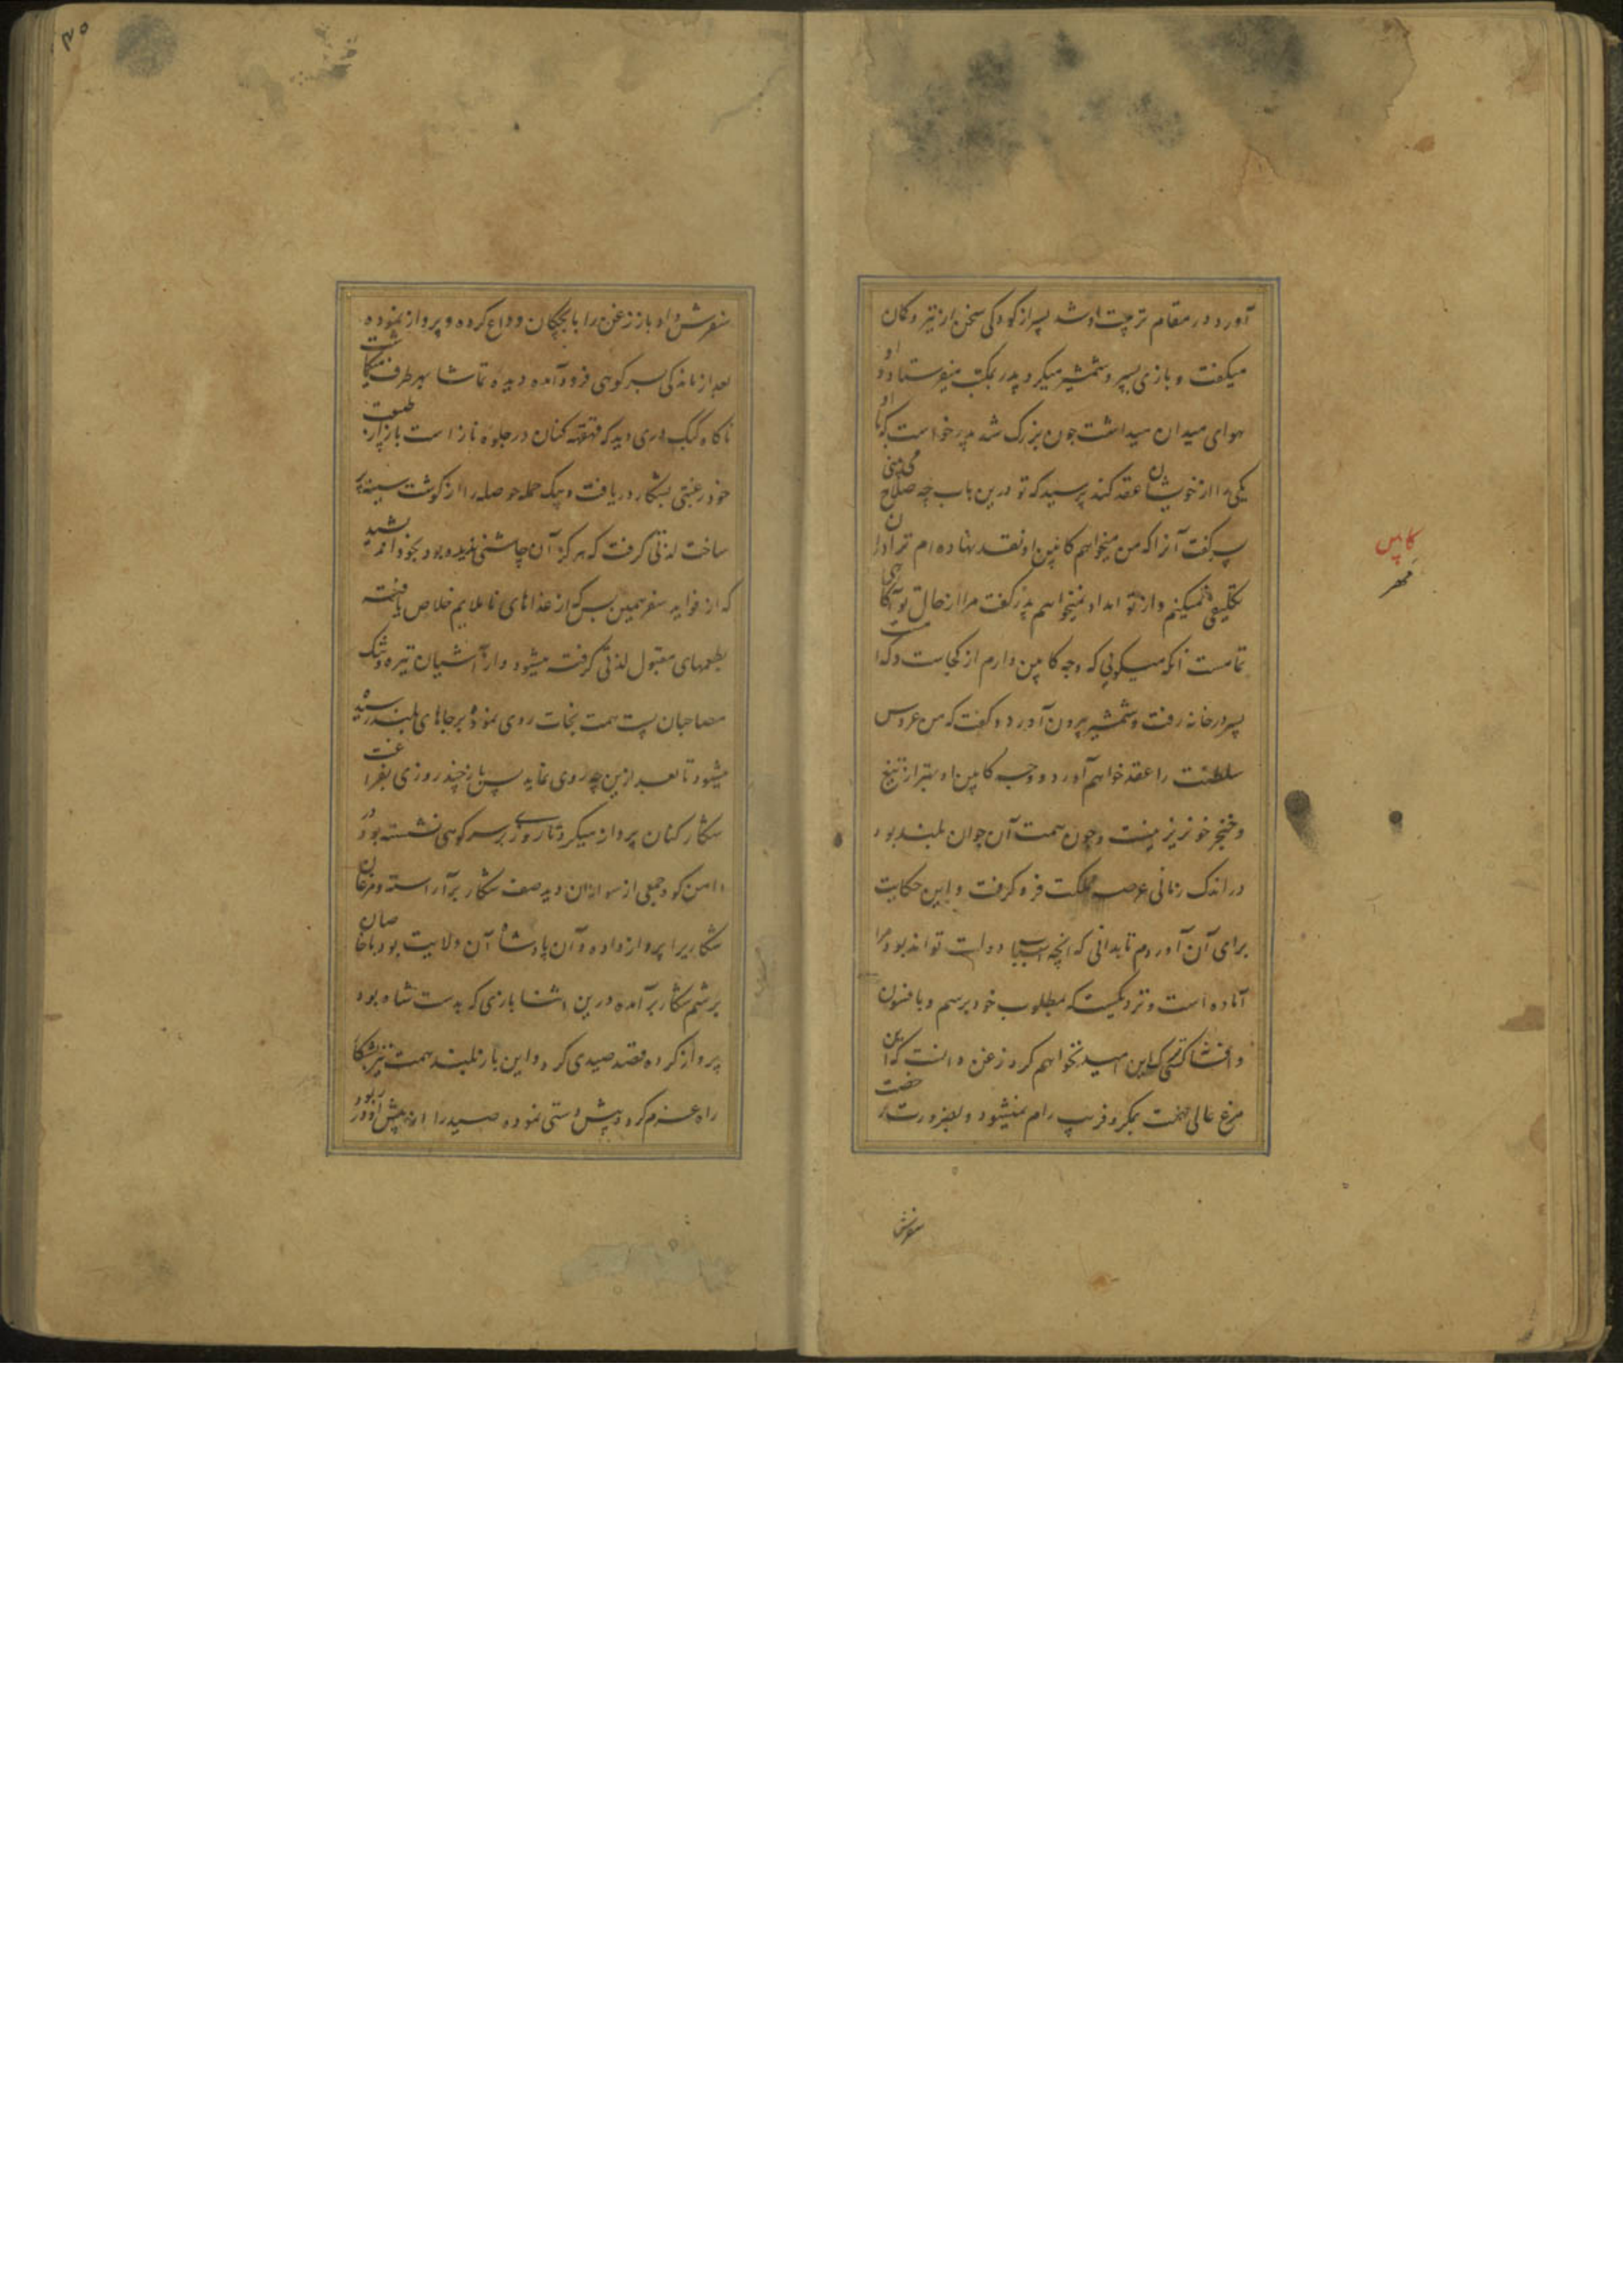 آورد و در مقام تربیت او شد پسر از کودکی سخن از تیر و کمان
میکفت و بازی بسپر و شمشیر میکرد پدر بمکتب میفرستاد و او
هوای میدان میداشت چون بزرک شد پدر خواست که با او
یکی را از خویشان عقد کند پرسید که تو درین باب چه صلاح می بینی
پسر کفت آنرا که من میخواهم کابین او نقد نهاده ام ترا در آن
تکلیفی نمیکنم و از تو امداد نمیخواهم پدر کفت مرا از حال تو آکاهی
تمامست آنکه میکویی که وجه کابین دارم از کجاست و کدامست
پسر در خانه رفت و شمشیر بیرون آورد و کفت که من عروس
سلطنت را عقد خواهم آورد و وجه کابین او بهتر از تیغ
و خنجر خونریز نیست و چون همت آن جوان بلند بود
در اندک زمانی عرصه مملکت فرو کرفت و این حکایت
برای آن آوردم تا بدانی که آنچه اسباب دولت تواند بود مرا
آماده است و نزدیکست که بمطلوب خود برسم و بافسون
و افسانه کسی ترک این امید نخواهم کرد زغن دانست که این
مرغ عالی همت بمکر و فریب رام نمیشود و بضرورت رخصت
سفرش
کابین
مهر
سفرش داد باز زغن را با بچکان وداع کرده و پرواز نموده
بعد از ماندکی بسر کوهی فرود آمده دیده تماشا بهر طرف میکماشت
ناکاه کبک دری دید که قهقهه کنان در جلوه ناز است باز از طبیعت
خود رغبتی بشکار دریافت و بیک حمله حوصله را از کوشت سینه پر
ساخت لذتی کرفت که هرکز آن چاشنی ندیده بود بخود اندیشید
که از فواید سفر همین بس که از غذاهای ناملایم خلاص یافته
بطعمهای مقبول لذتی کرفته میشود و از آشیان تیره و تنک
مصاحبان پست همت نجات روی نموده بر جاهای بلند رسیده
میشود تا بعد ازین چه روی نماید پس باز چند روزی بفراغت
شکار کنان پرواز میکرد تا روزی بر سر کوهی نشسته بود در
دامن کوه جمعی از سواران دید صف شکار بر آراسته و مرغان
شکاریرا پرواز داده و آن پادشاه آن ولایت بود با خاصان
برسم شکار بر آمده درین اثنا بازی که بدست شاه بود
پرواز کرده قصد صیدی کرد و این باز بلند همت نیز بشکار
راه عزم کرد و پیش دستی نموده صید را از پیش او در ربود